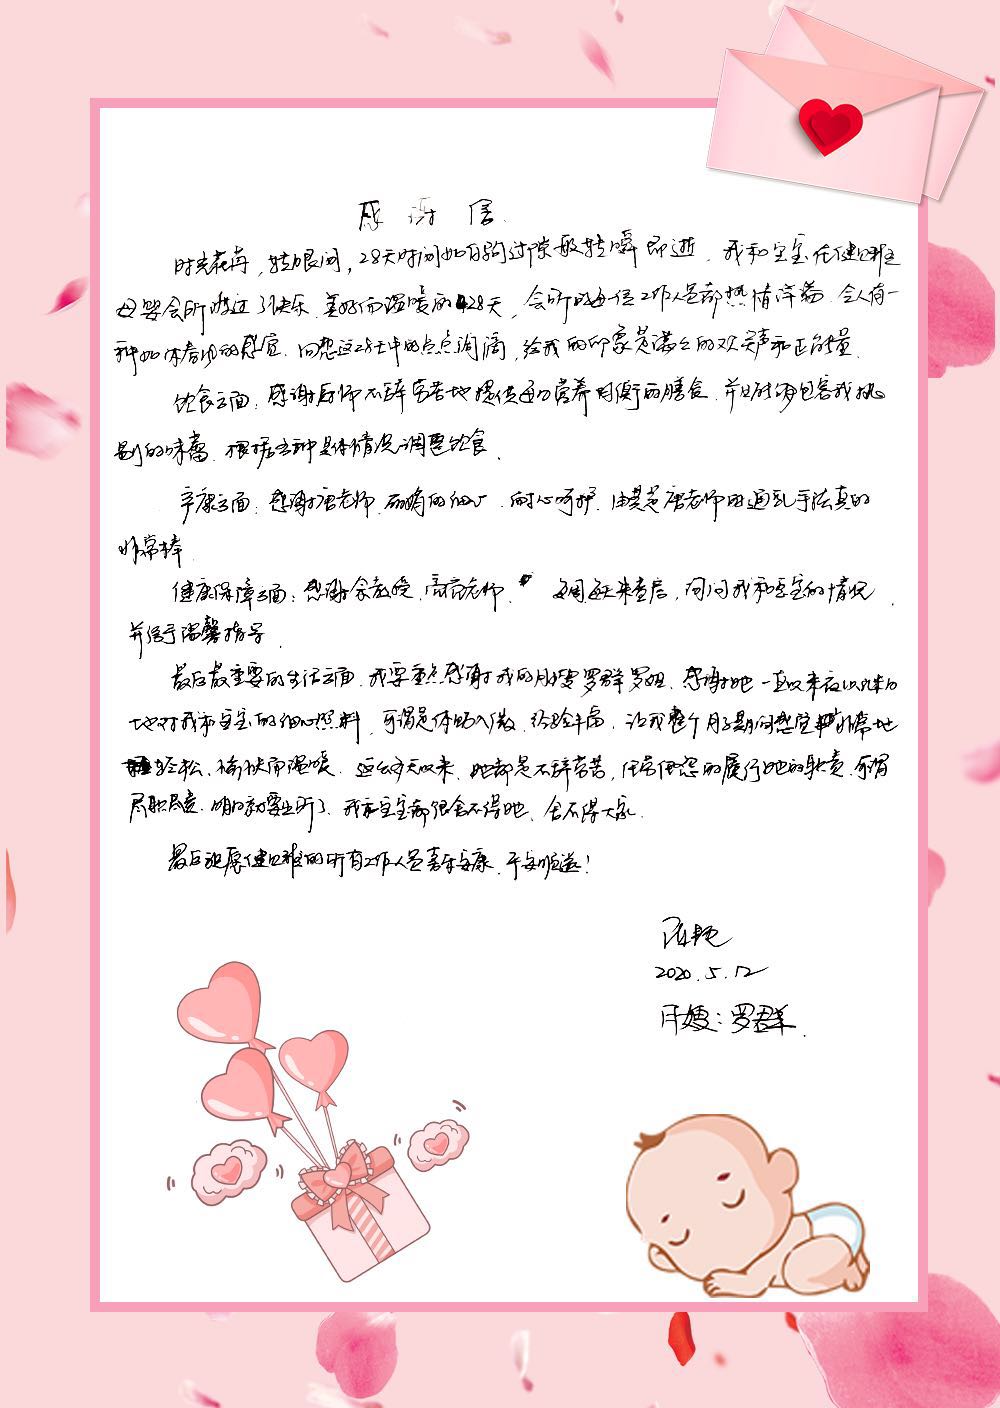 感谢信
时光荏苒，转眼间，28天时间如白驹过隙般转瞬即逝，我和宝宝在健
母婴会所渡过了快乐、美好而温暖的28天，会所的每位工作人员都热情洋溢，令人有一
种如沐春风的感觉，回想这28天中的点点滴滴，给我的印象是满满的欢笑声和正能量。
饮食方面：感谢厨师不辞辛苦地提供营养均衡的膳食，并且能够包容我挑
剔的味蕾，根据各种具体情况调整饮食。
方面：感谢唐老师，的细心、耐心呵护，尤其是唐老师的通乳手法真的
非常棒。
健康保障方面：感谢余教授，老师，每周每天来查房，询问我和宝宝的情况，
并给予温馨指导。
最后最重要的生活方面，我要重点感谢我的月嫂罗群罗姐，感谢她一直以来夜以继日
地对我和宝宝的细心照料，可谓是体贴入微，经验丰富，让我整个月子期间感觉非常地
轻松、愉快而温暖。这么多天以来，她都是不辞辛苦，任劳任怨的履行她的职责，可谓
尽职尽责，明日就要出所了，我和宝宝都很舍不得她，舍不得大家。
最后祝愿健的所有工作人员喜乐安康，平安顺遂！
2020.5.12
月嫂：罗群